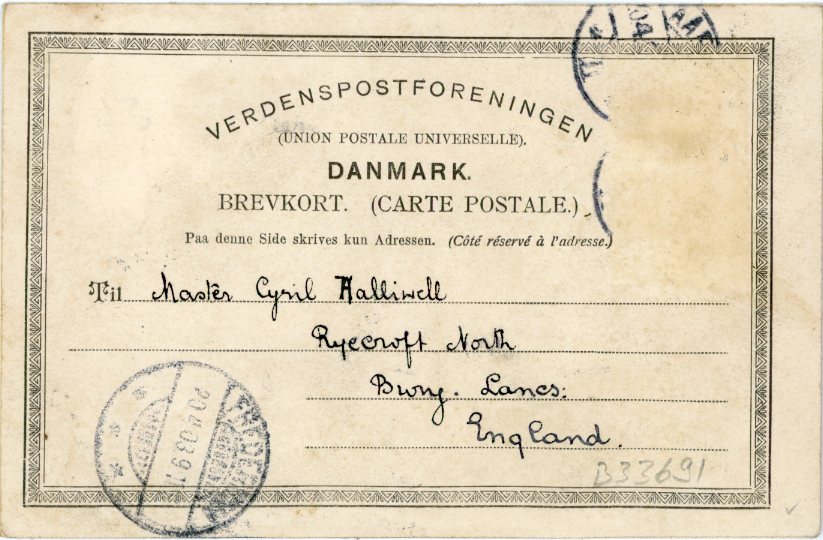 VERDENSPOSTFORENINGEN
(UNION POSTALE UNIVERSELLE).
DANMARK.
BREVKORT. (CARTE POSTALE.)
Paa denne Side skrives kun Adressen. (Côté réservé à l'adresse.)
Til Master Cyril Halliwell
Ryecroft North
Bury. Lancs:
England.
B33691